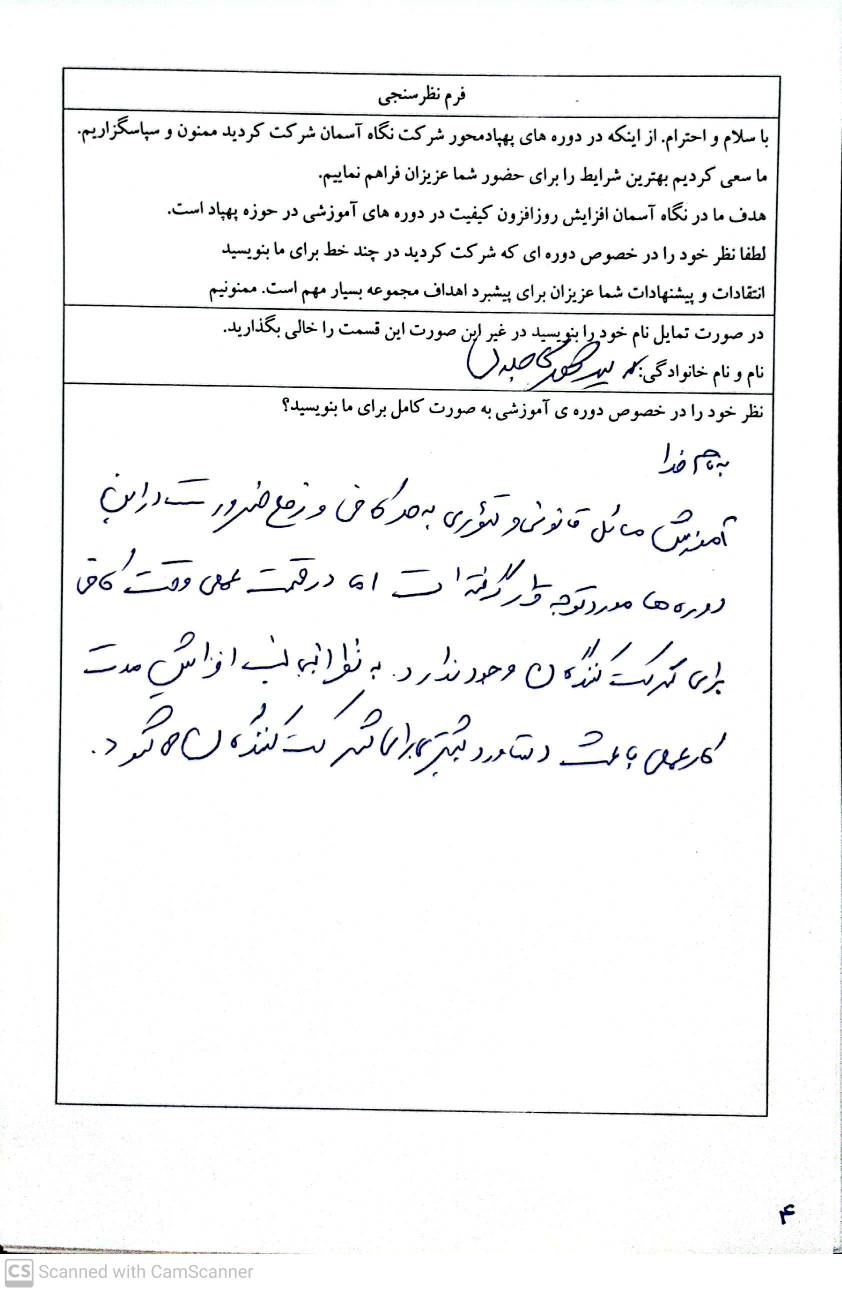 فرم نظرسنجی
با سلام و احترام. از اینکه در دوره های پهپادمحور شرکت نگاه آسمان شرکت کردید ممنون و سپاسگزاریم.
ما سعی کردیم بهترین شرایط را برای حضور شما عزیزان فراهم نماییم.
هدف ما در نگاه آسمان افزایش روزافزون کیفیت در دوره های آموزشی در حوزه پهپاد است.
لطفا نظر خود را در خصوص دوره ای که شرکت کردید در چند خط برای ما بنویسید
انتقادات و پیشنهادات شما عزیزان برای پیشبرد اهداف مجموعه بسیار مهم است. ممنونیم
در صورت تمایل نام خود را بنویسید در غیر این صورت این قسمت را خالی بگذارید.
نام و نام خانوادگی:
نظر خود را در خصوص دوره ی آموزشی به صورت کامل برای ما بنویسید؟
به نام خدا
آموزش مسائل قانونی و تئوری به حد کافی و رفع ضرورت در این
دوره ها مورد توجه قرار گرفته است اما در قسمت عملی وقت کافی
برای شرکت کنندگان وجود ندارد. به نظر اینجانب افزایش مدت
کار عملی باعث دستاورد بیشتری برای شرکت کنندگان می شود.
۴
CS Scanned with CamScanner